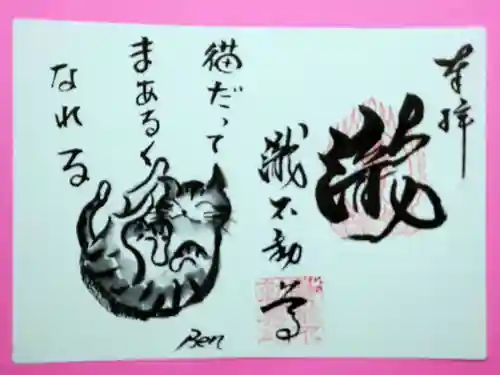 奉拝
瀧
滝不動尊
猫だって
まあるく
なれる
Ben